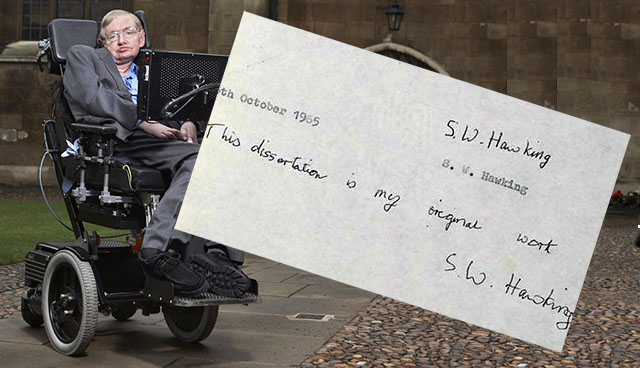 th October 1965
S.W. Hawking
S. W. Hawking
This dissertation is my original work
S.W. Hawking